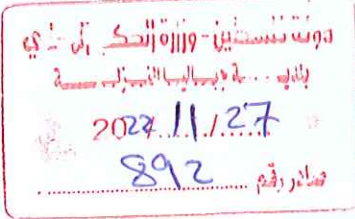 دولة فلسطين - وزارة الحكم المحلي
بلدية جباليا النزلة
2022/11/27
صادر رقم 892